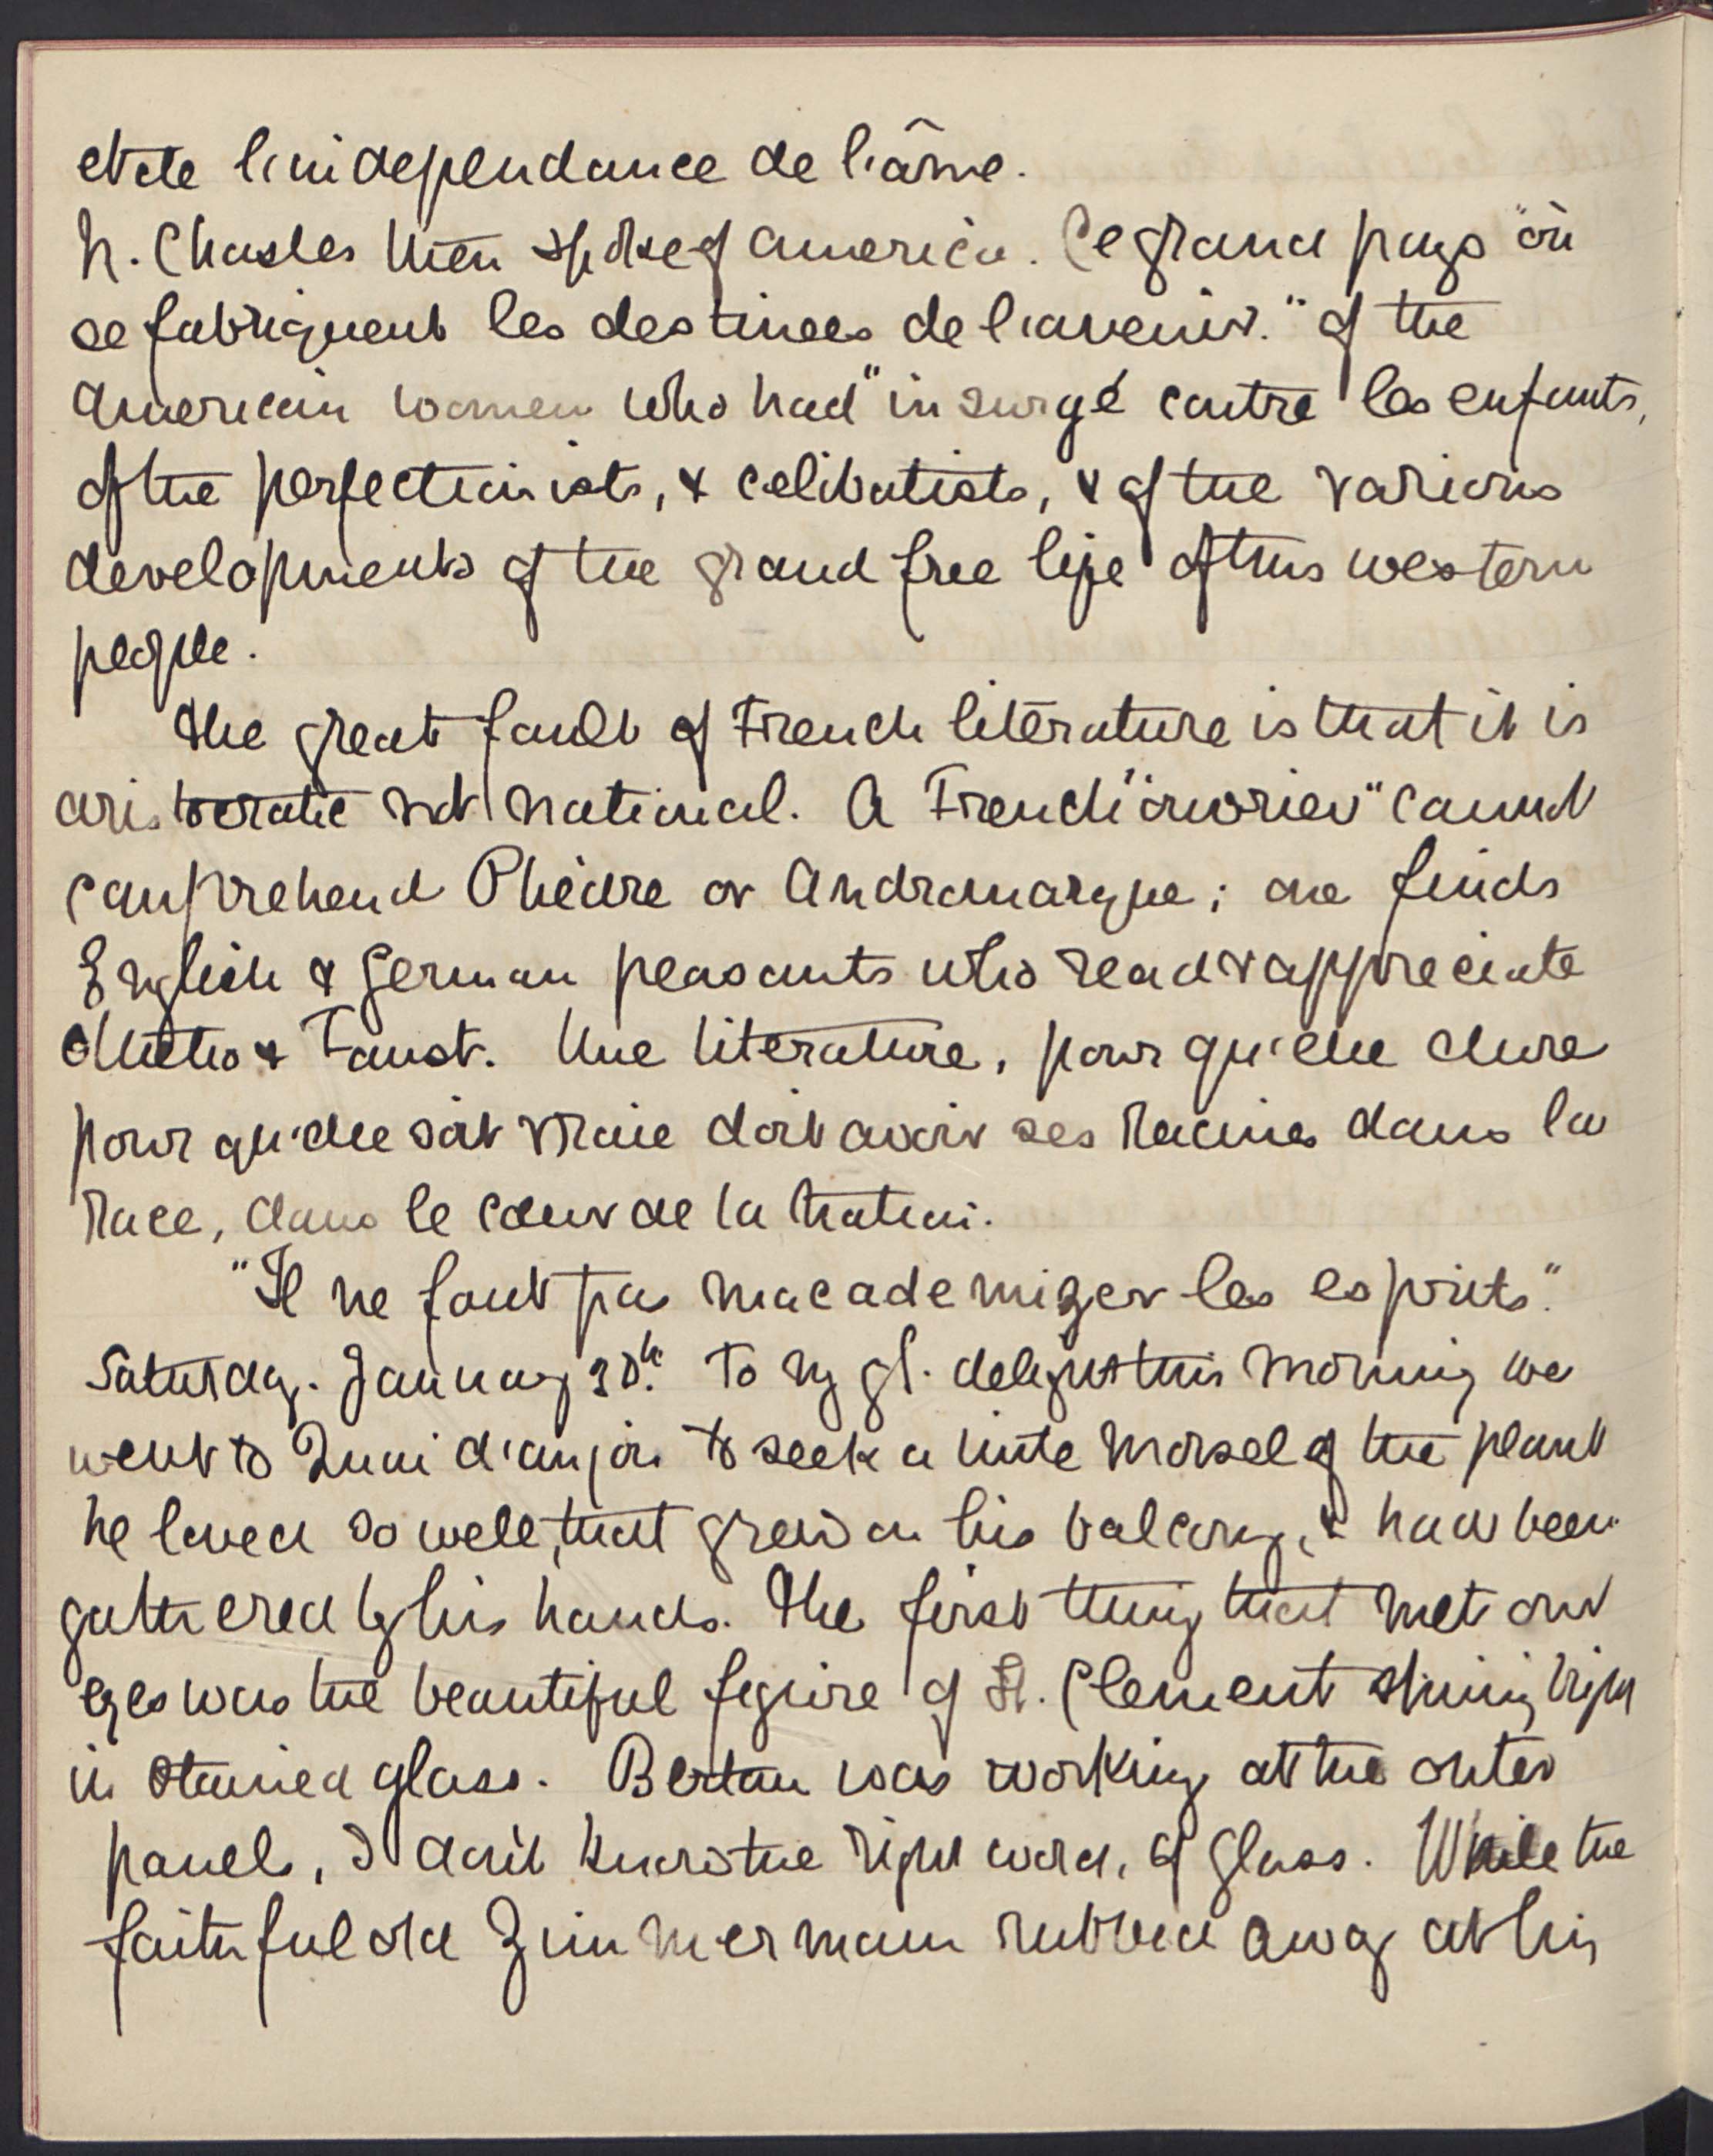 et de l'independance de l'âme.
M. Chasles then spoke of America. Ce grand pays "où
se fabriquent les destinees de l'avenir." of the
American women who had "insurgé contre les enfants,
of the perfectionists, & celibatists, & of the various
developments of the grand free life of this western
people.
The great fault of French literature is that it is
aristocratic not national. A French "ouvrier" cannot
comprehend Phèdre or Andromaque; one finds
English & German peasants who read & appreciate
Othello & Faust. Une literature, pour qu'elle dure
pour qu'elle soit vraie doit avoir ses racines dans la
race, dans le cœur de la nation.
"Il ne faut pas macademizer les esprits."
Saturday. January 30th. To my gt. delight this morning we
went to Quai d'anjou to seek a little morsel of the plant
he loved so well, that grew on his balcony, & had been
gathered by his hands. The first thing that met our
eyes was the beautiful figure of St. Clement shining bright
in stained glass. Bertau was working at the outer
panels, I don't know the right word, of glass. While the
faithful old Zimmermann rubbed away at his